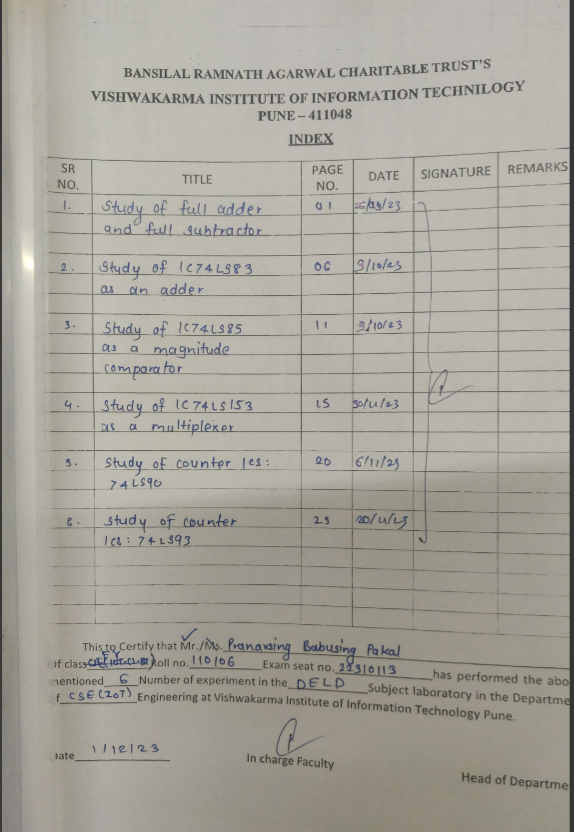 BANSILAL RAMNATH AGARWAL CHARITABLE TRUST'S
VISHWAKARMA INSTITUTE OF INFORMATION TECHNILOGY
PUNE – 411048
INDEX
SR NO. TITLE PAGE NO. DATE SIGNATURE REMARKS
1. Study of full adder 01 25/09/23
and full subtractor
2. Study of IC74LS83 06 9/10/23
as an adder
3. Study of IC74LS85 11 9/10/23
as a magnitude
comparator
4. Study of IC74LS153 15
as a multiplexer
5. Study of counter ICs: 20 6/11/23
74LS90
6. Study of counter 25
ICs: 74LS93
This to Certify that Mr./Ms. Pranavsing Babusing Pakal
of class Roll no. 110106 Exam seat no. 22310113 has performed the abo
mentioned 6 Number of experiment in the DELD Subject laboratory in the Departme
f CSE(IOT) Engineering at Vishwakarma Institute of Information Technology Pune.
Date 1/12/23
In charge Faculty
Head of Departme